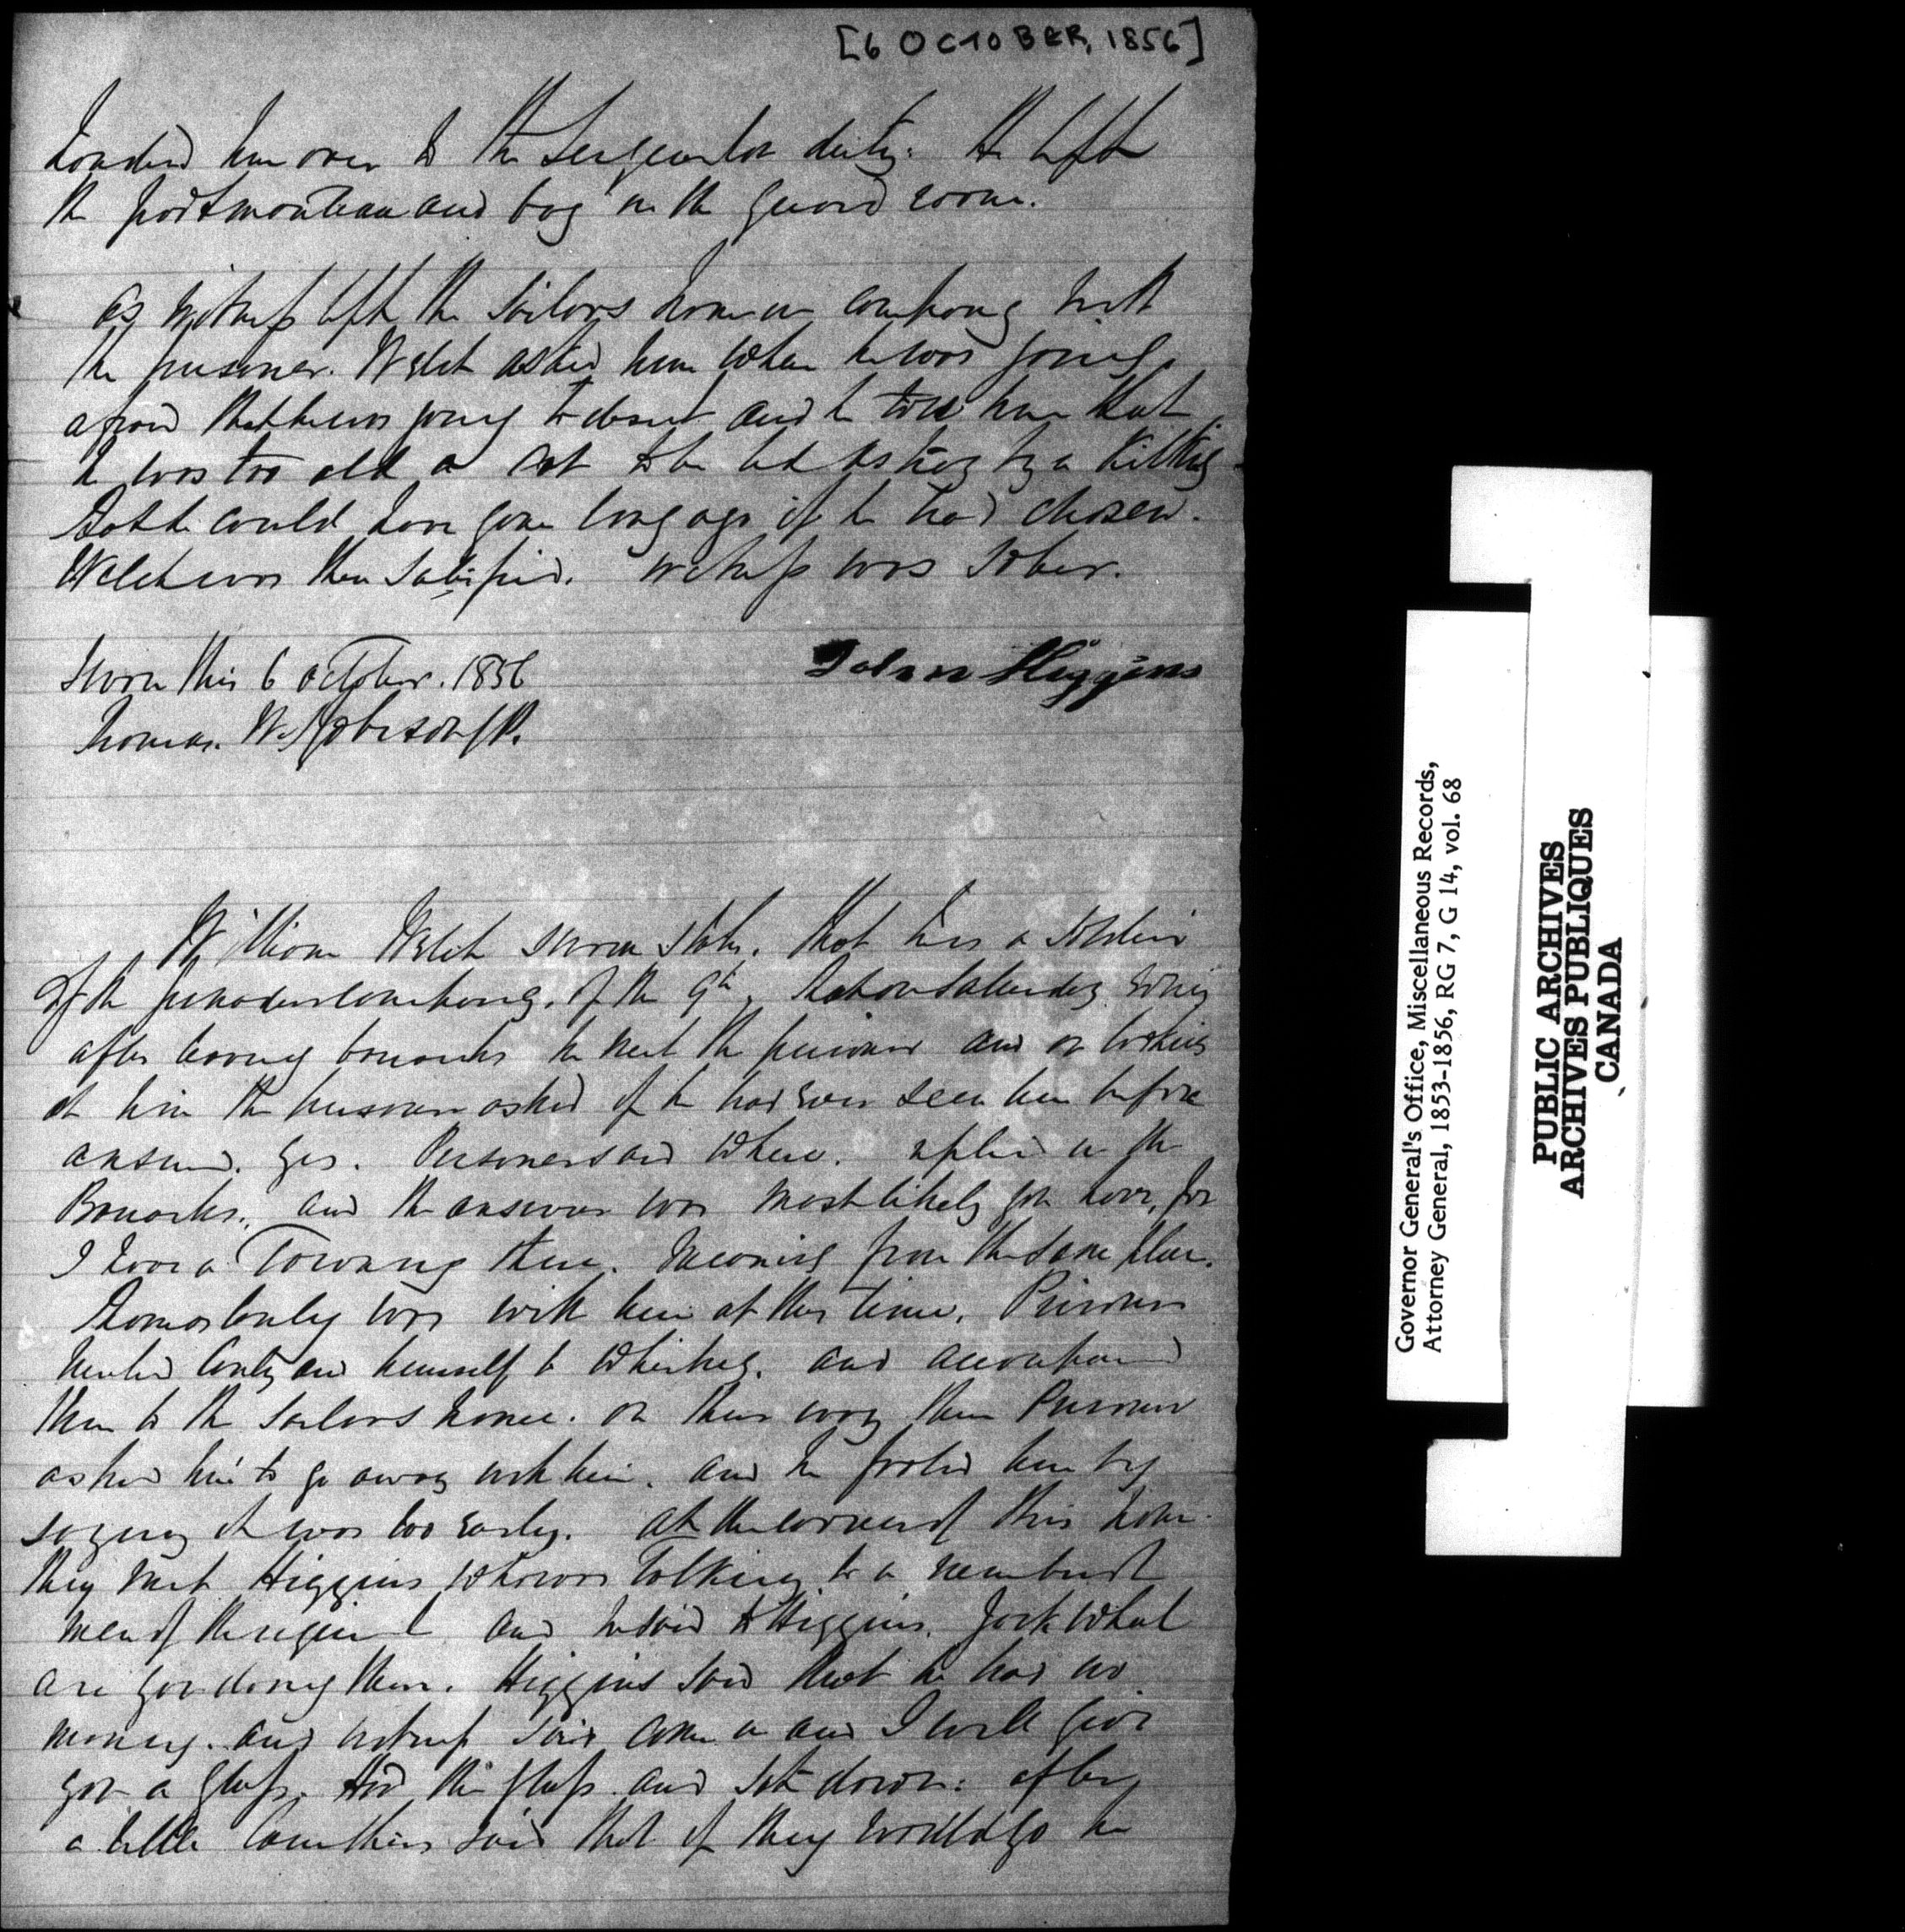 [6 OCTOBER, 1856]
handed him over to the Sergeant on duty. He left
the portmanteau and bag in the guard room.
As witness left the Sailors home in company with
the prisoner. Welch asked him where he was going
afraid that he was going to desert and he told him that
he was too old a cat to be led astray by a Kitting
that he could have gone long ago if he had chosen.
Welch was then satisfied. Witness was sober.
Sworn this 6 October. 1856
John Higgins
Thomas. W. Robison JP.
William Welch sworn states. that he is a soldier
of the Grenadier company. of the 9th, that on Saturday Evg
after leaving barracks he met the prisoner and on looking
at him the prisoner asked if he had ever seen him before
answered. yes. Prisoner said where. replied in the
Barracks., and the answer was most likely you have, for
I have a Towny there. meaning from the same place.
Thomas Conly was with him at this time. Prisoner
invited Conly and himself to Whiskey. and accompanied
them to the Sailors home. on their way there Prisoner
asked him to go away with him. and he fooled him by
saying it was too early. At the corner of this home
they met Higgins who was talking to a
men of the regiment and he said to Higgins. Jack what
are you doing there. Higgins said that he had no
money. and witness said come in and I will give
you a glass. Had the glass and sat down: after
a little Carruthers said that if they would go he
Governor General's Office, Miscellaneous Records,
Attorney General, 1853-1856, RG 7, G 14, vol. 68
PUBLIC ARCHIVES
ARCHIVES PUBLIQUES
CANADA